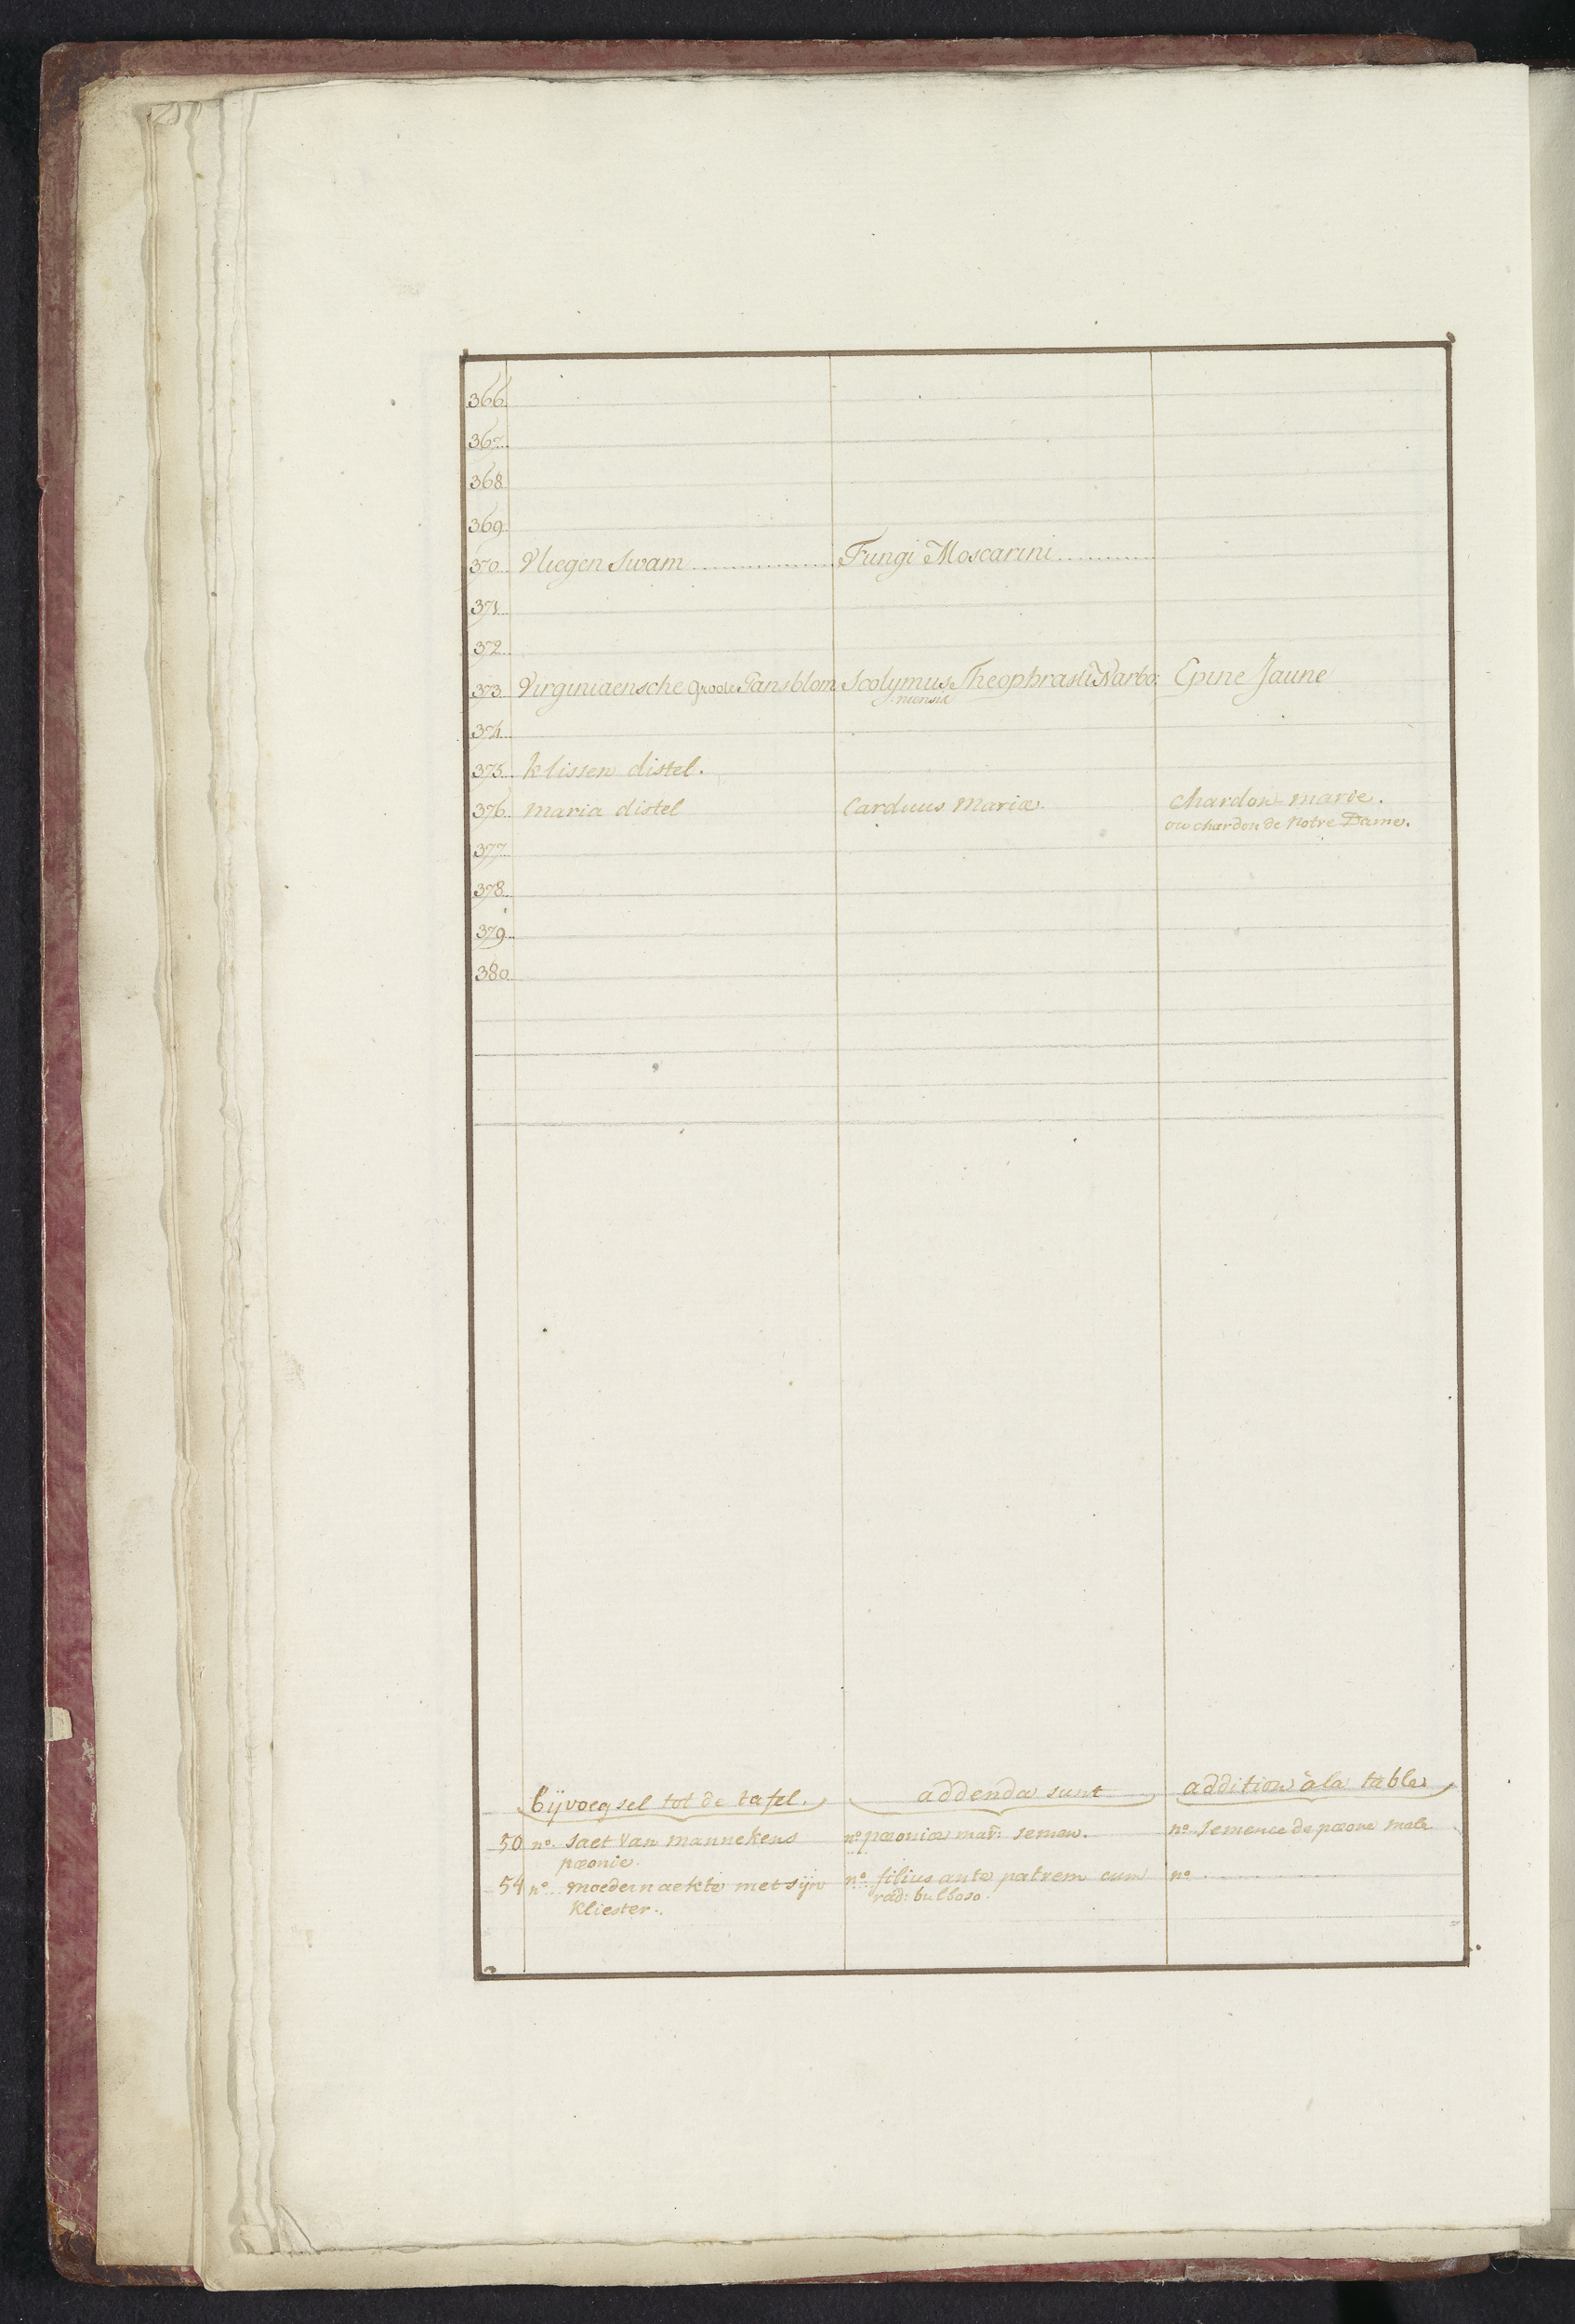 366.
367.
368.
369.
370. Vliegen Swam Fungi Moscarini
371.
372.
373. Virginiaensche groote Gansblom Scolymus Theophrasti Narbo: Epine Jaune
niensis
374.
375. klissen distel.
376. maria distel Carduus Mariæ. chardon marie.
ou chardon de Notre Dame.
377.
378.
379.
380.
bijvoegsel tot de tafel. addenda sunt addition à la table
50 no. saet van mannekens no pæoniæ mar: semen. no. semence de pæone male
pæonie.
54 no. moedernaekte met sijn no. filius ante patrem cum no.
kliester. rad: bulboso.